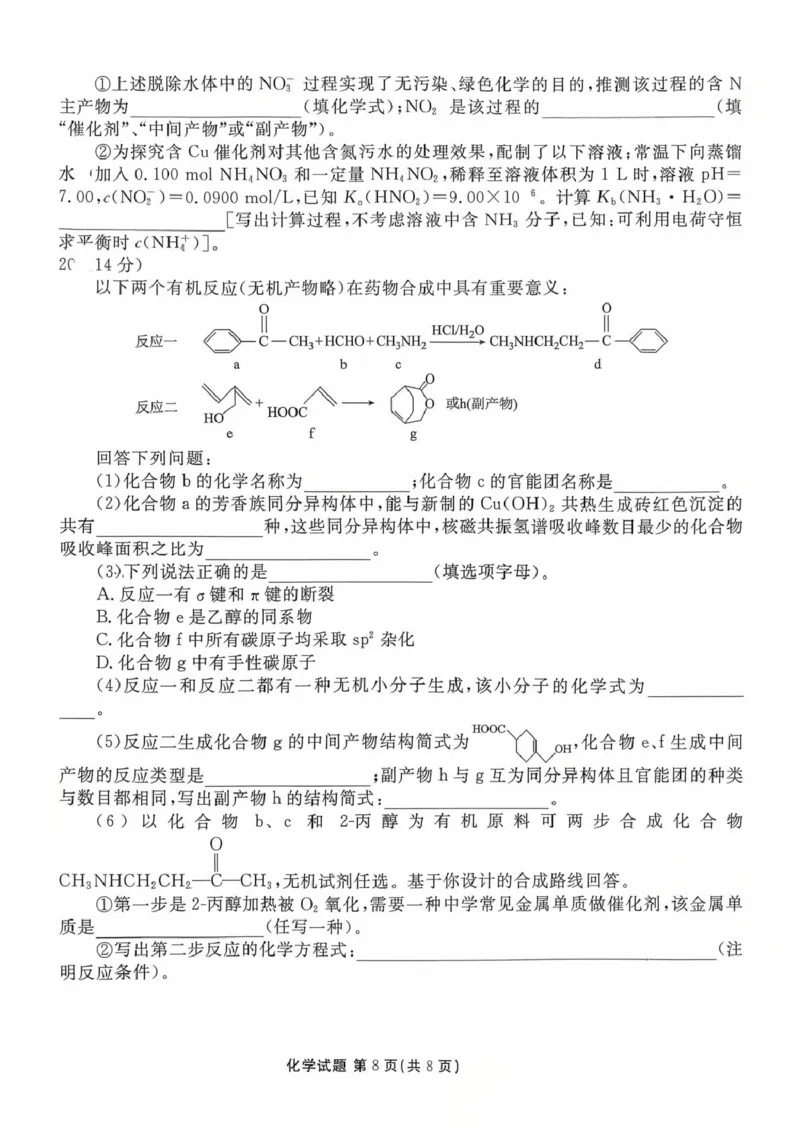 ①上述脱除水体中的 NO₃⁻ 过程实现了无污染、绿色化学的目的,推测该过程的含 N
主产物为____________(填化学式);NO₂ 是该过程的____________(填
“催化剂”、“中间产物”或“副产物”)。
②为探究含 Cu 催化剂对其他含氮污水的处理效果,配制了以下溶液;常温下向蒸馏
水 加入 0.100 mol NH₄NO₃ 和一定量 NH₄NO₂,稀释至溶液体积为 1 L 时,溶液 pH=
7.00,c(NO₂⁻)=0.0900 mol/L,已知 Kₐ(HNO₂)=9.00×10 ⁶。计算 K_b(NH₃·H₂O)=
____________[写出计算过程,不考虑溶液中含 NH₃ 分子,已知:可利用电荷守恒
求平衡时 c(NH₄⁺)]。
20 14 分)
以下两个有机反应(无机产物略)在药物合成中具有重要意义:
反应一 O C—CH₃+HCHO+CH₃NH₂ HCl/H₂O CH₃NHCH₂CH₂—C— O
a b c d
反应二 HO + HOOC O O 或h(副产物)
e f g
回答下列问题:
(1)化合物 b 的化学名称为____________;化合物 c 的官能团名称是____________。
(2)化合物 a 的芳香族同分异构体中,能与新制的 Cu(OH)₂ 共热生成砖红色沉淀的
共有____________种,这些同分异构体中,核磁共振氢谱吸收峰数目最少的化合物
吸收峰面积之比为____________。
(3)下列说法正确的是____________(填选项字母)。
A. 反应一有 σ 键和 π 键的断裂
B. 化合物 e 是乙醇的同系物
C. 化合物 f 中所有碳原子均采取 sp² 杂化
D. 化合物 g 中有手性碳原子
(4)反应一和反应二都有一种无机小分子生成,该小分子的化学式为____________
____。
(5)反应二生成化合物 g 的中间产物结构简式为 HOOC OH,化合物 e、f 生成中间
产物的反应类型是____________;副产物 h 与 g 互为同分异构体且官能团的种类
与数目都相同,写出副产物 h 的结构简式:____________。
(6)以化合物 b、c 和 2-丙醇为有机原料可两步合成化合物
O
CH₃NHCH₂CH₂—C—CH₃,无机试剂任选。基于你设计的合成路线回答。
①第一步是 2-丙醇加热被 O₂ 氧化,需要一种中学常见金属单质做催化剂,该金属单
质是____________(任写一种)。
②写出第二步反应的化学方程式:____________(注
明反应条件)。
化学试题 第 8 页(共 8 页)